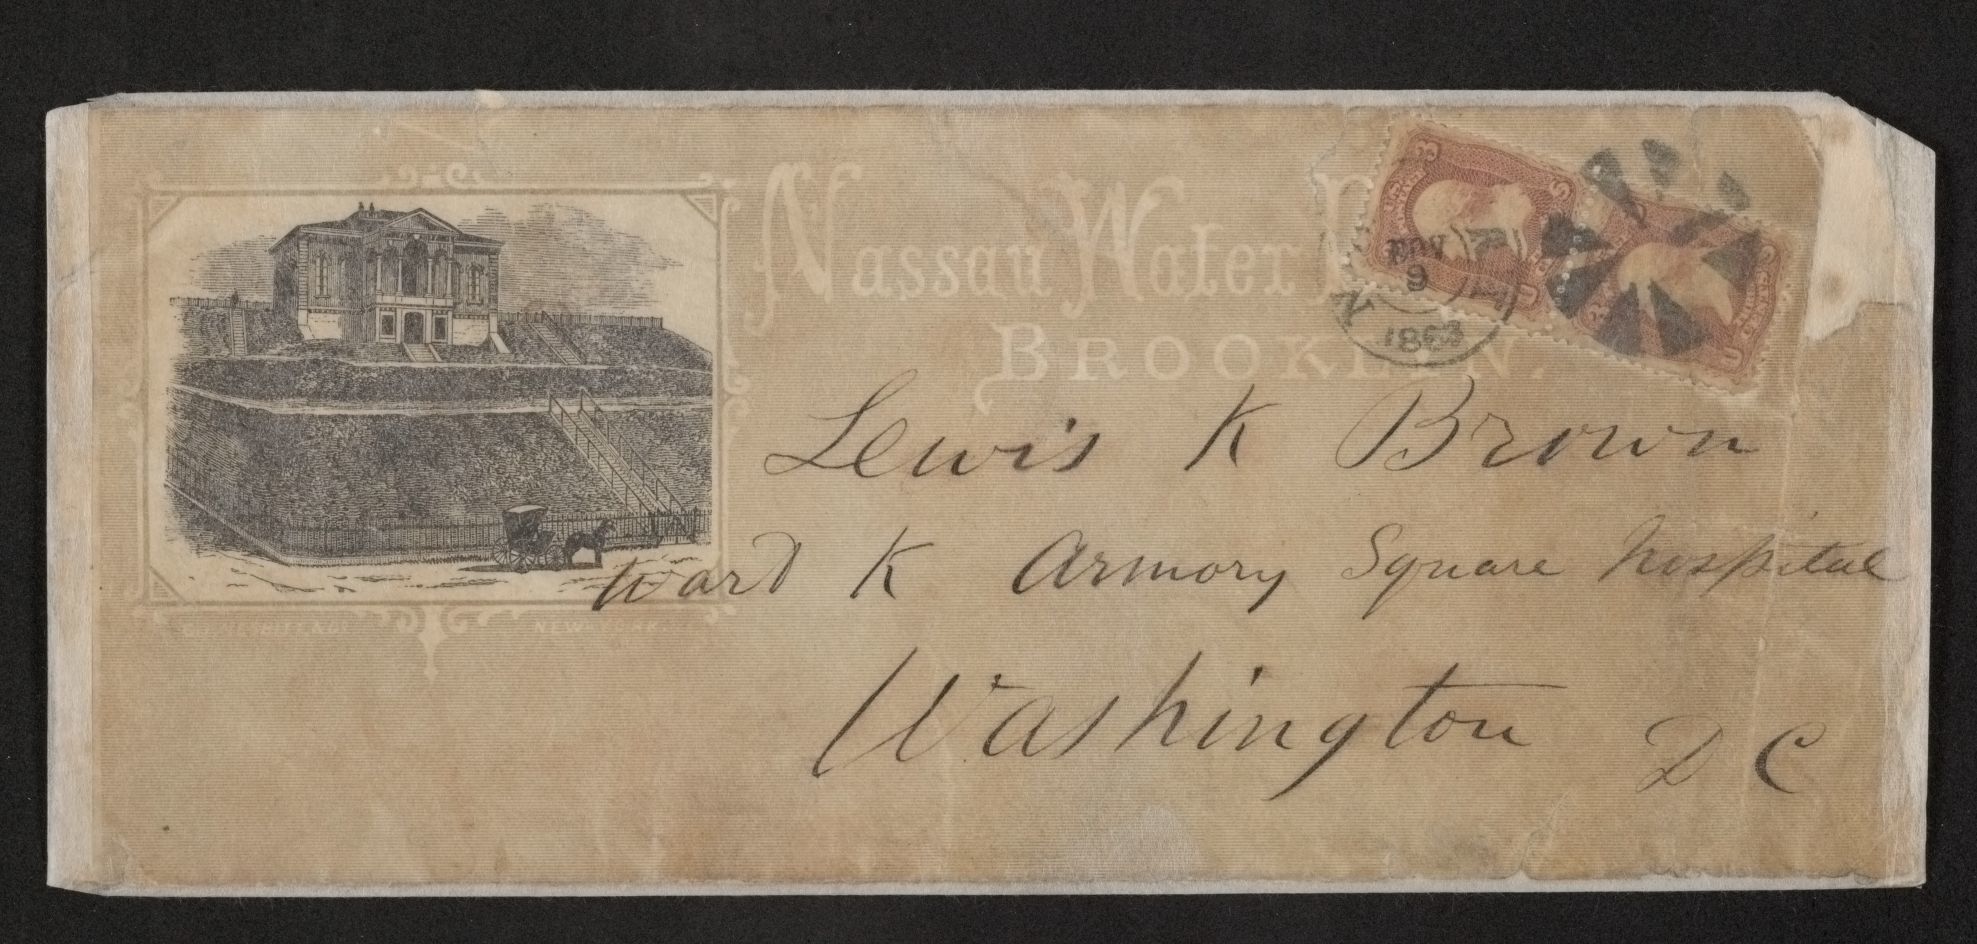 Nassau Water
BROOKLYN.
3
NOV
9
1863
Lewis K Brown
Ward K Armory Square hospital
Washington D C
NEW-YORK